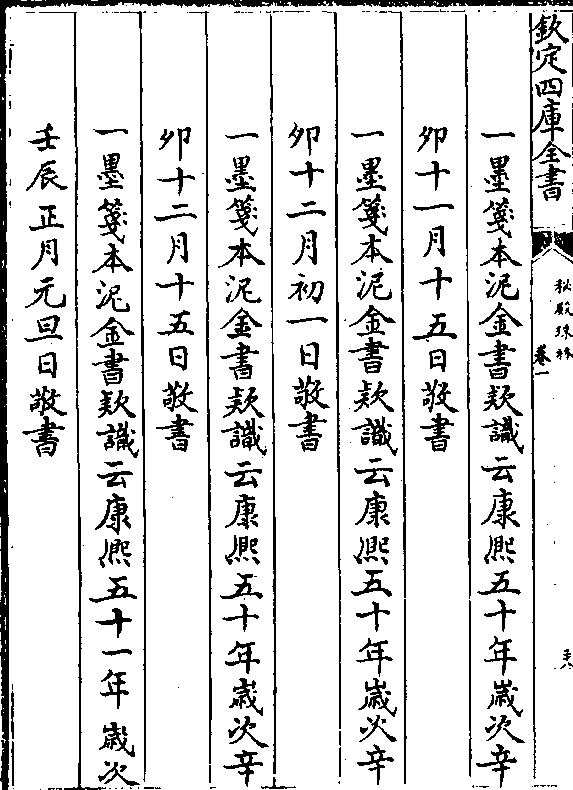 欽定四庫全書
秘殿珠林
卷一
一墨箋本泥金書欵識云康熙五十年歲次辛
卯十一月十五日敬書
一墨箋本泥金書欵識云康熙五十年歲次辛
卯十二月初一日敬書
一墨箋本泥金書欵識云康熙五十年歲次辛
卯十二月十五日敬書
一墨箋本泥金書欵識云康熙五十一年歲次
壬辰正月元旦日敬書